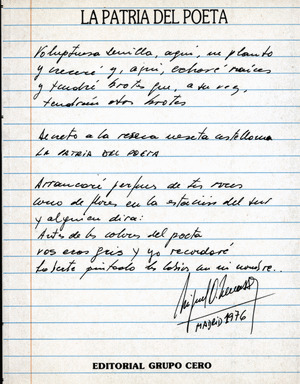 LA PATRIA DEL POETA
Voluptuosa semilla, aquí, me planto
y creceré y, aquí, echaré raíces
y tendré brotes que, a su vez,
tendrán otros brotes
Decreto a la reseca meseta castellana
LA PATRIA DEL POETA
Arrancaré perfumes de tus
como de flores en la estación del sur
y alguien dirá:
Antes de los colores del poeta
vos eras gris y yo recordaré
haberte pintado los labios con mi nombre..
Miguel O. Menassa
MADRID 1976
EDITORIAL GRUPO CERO